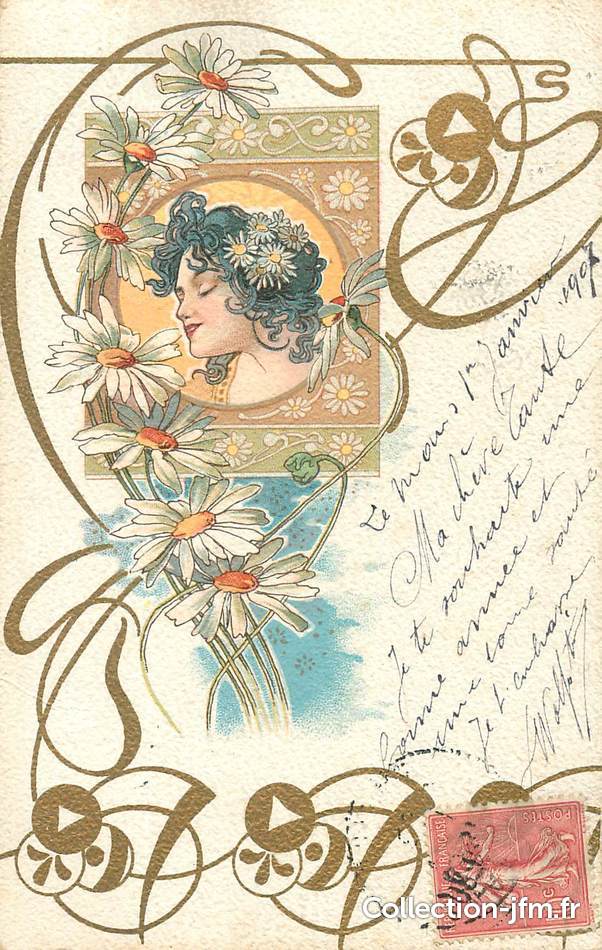 Le Mans 1er Janvier 1907
Ma chère Tante
Je te souhaite une
bonne année et
une bonne santé
Je t'embrasse
POSTES
FRANÇAISE
Collection-jfm.fr